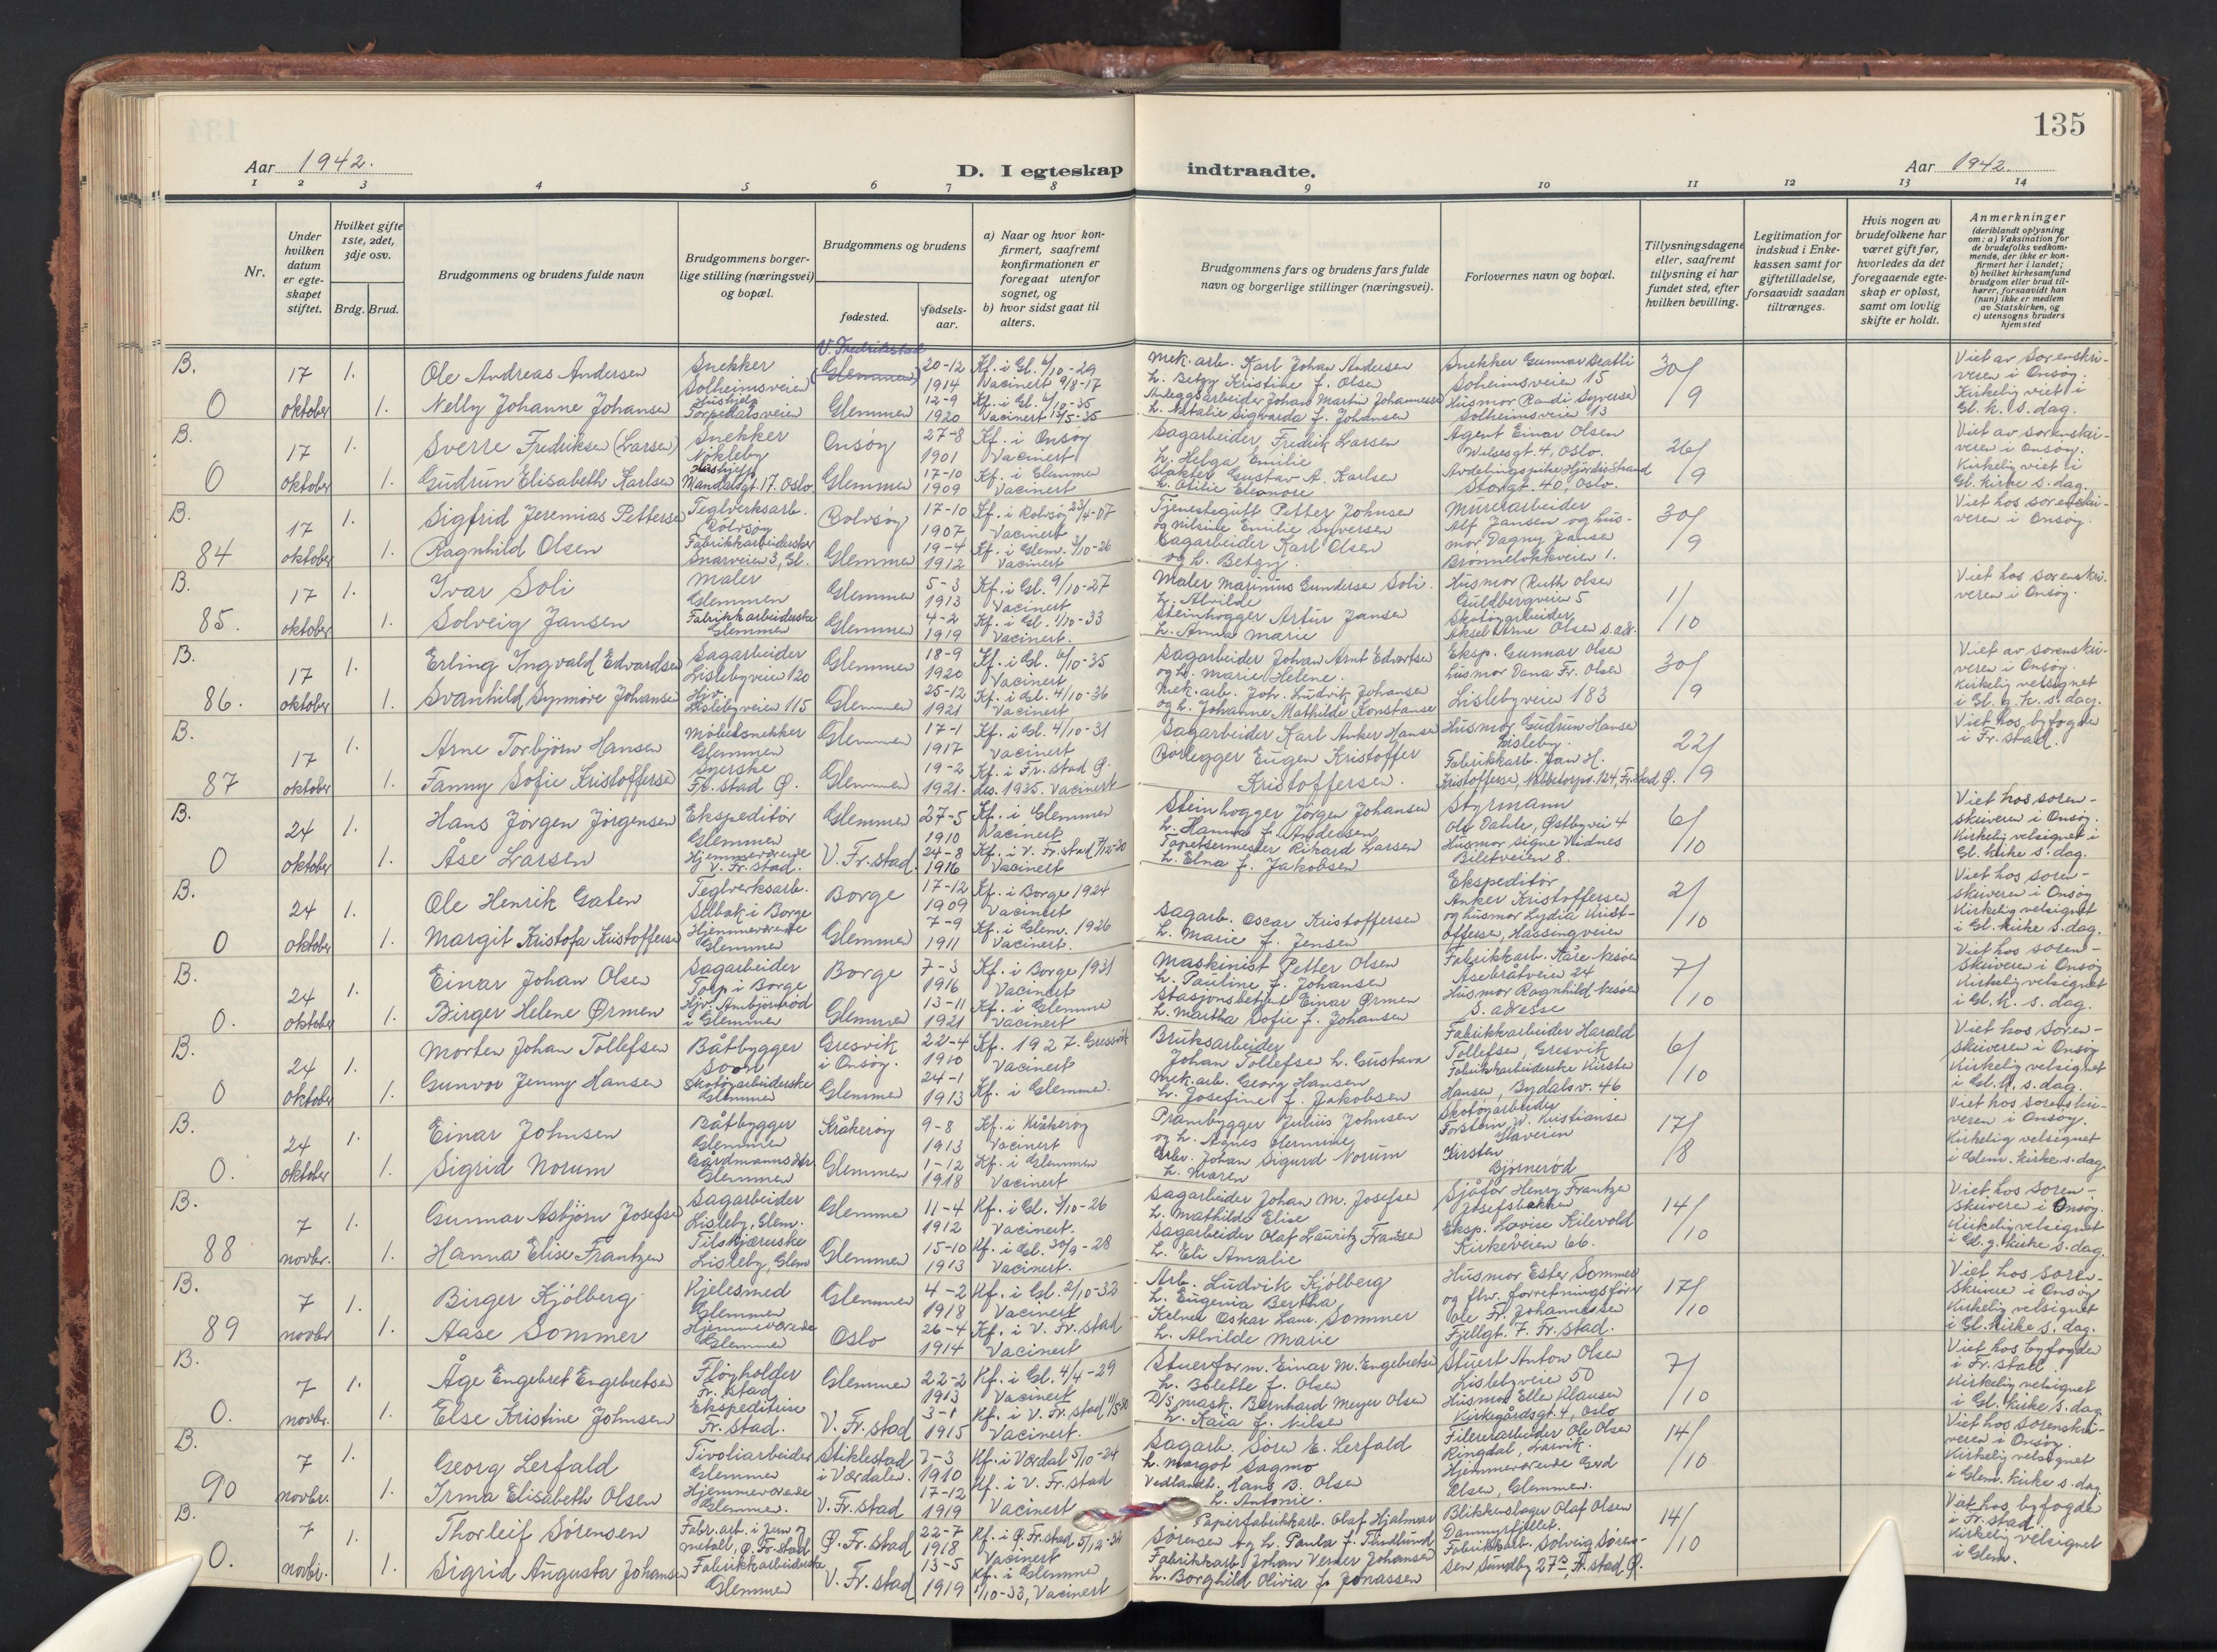 135
Aar 1942.
D. I egteskap indtraadte.
Aar 1942.
1 2 3 4 5 6 7 8 9 10 11 12 13 14
Nr.
Under hvilken datum er egteskapet stiftet.
Hvilket gifte 1ste, 2det, 3dje osv.
Brdg. Brud.
Brudgommens og brudens fulde navn
Brudgommens borgerlige stilling (næringsvei) og bopæl.
Brudgommens og brudens
fødested.
fødselsaar.
a) Naar og hvor konfirmert, saafremt konfirmationen er foregaat utenfor sognet, og
b) hvor sidst gaat til alters.
Brudgommens fars og brudens fars fulde navn og borgerlige stillinger (næringsvei).
Forlovernes navn og bopæl.
Tillysningsdagene eller, saafremt tillysning ei har fundet sted, efter hvilken bevilling.
Legitimation for indskud i Enkekassen samt for giftetilladelse, forsaavidt saadan tiltrænges.
Hvis nogen av brudefolkene har været gift før, hvorledes da det foregaaende egteskap er opløst, samt om lovlig skifte er holdt.
Anmerkninger
(deriblandt oplysning om: a) Vaksination for de brudefolks vedkommende, der ikke er konfirmert her i landet;
b) hvilket kirkesamfund brudgom eller brud tilhører, forsaavidt han (hun) ikke er medlem av Statskirken, og
c) utensogns bruders hjemsted
B. 17 1. Ole Andreas Andersen Snekker Solheimsveien V. Fredrikstad (Glemmen) 20-12 1914 Kf. i Gl. 6/10-29 Vacinert 9/8-17 Mek. arb. Karl Johan Andersen h. Betzy Kristine f. Olsen Snekker Gunnar Bratli Solheimsveien 15 30/9 Viet av Sorenskriveren i Onsøy. Kirkelig viet i Gl. k. s. dag.
0 oktober 1. Nelly Johanne Johansen Hushjelp Torpedalsveien Glemmen 12-9 1920 Kf. i Gl. 6/10-35 Vacinert 13/5-35 Anleggsarbeider Johan Martin Johannessen h. Natalie Sigvarda f. Johansen Husmor Randi Syversen Solheimsveien 13
B. 17 1. Sverre Fredriksen (Larsen) Snekker Nøkleby Onsøy 27-8 1901 Kf. i Onsøy Vacinert Sagarbeider Fredrik Larsen h. Helga Emilie Agent Einar Olsen Wilsesgt. 4, Oslo. 26/9 Viet av sorenskriveren i Onsøy. Kirkelig viet i Gl. kirke s. dag.
0 oktober 1. Gudrun Elisabeth Karlsen Hushjelp Mandalsgt. 17. Oslo. Glemmen 17-10 1909 Kf. i Glemmen Vacinert Slakter Gustav A. Karlsen h. Otilie Eleonore Avdelingspike Hjørdis Strand Storgt. 40, Oslo.
B. 17 1. Sigfrid Jeremias Pettersen Teglverksarb. Rolvsøy Rolvsøy 17-10 1907 Kf. i Rolvsøy 23/4-07 Vacinert Tjenestegutt Petter Johnsen og Nilsine Emilie Syversen Murerarbeider Alf Jansen og husmor Dagny Jansen Brønneløkkveien 1. 30/9 Viet hos sorenskriveren i Onsøy.
84 oktober 1. Ragnhild Olsen Fabrikkarbeiderske Snarveien 3, Gl. Glemmen 19-4 1912 Kf. i Glem. 3/10-26 Vacinert Sagarbeider Karl Olsen og h. Betzy.
B. 17 1. Ivar Soli Maler Glemmen Glemmen 5-3 1913 Kf. i Gl. 9/10-27 Vacinert Maler Marinius Gundersen Soli. h. Alvilde Husmor Ruth Olsen Guldbergveien 5 11/10 Viet hos sorenskriveren i Onsøy.
85. oktober 1. Solveig Jansen Fabrikkarbeiderske Glemmen Glemmen 4-2 1919 Kf. i Gl. 1/10-33 Vacinert. Steinhogger Artur Jansen h. Anna Marie Skotøyarbeider Aksel Arne Olsen s. adr.
B. 17 1. Erling Ingvald Edvardsen Sagarbeider Lislebyveien 120 Glemmen 18-9 1920 Kf. i Gl. 6/10-35 Vacinert Sagarbeider Johan Arnt Edvartsen og h. Marie Helene. Eksp. Gunnar Olsen husmor Dana Fr. Olsen Lislebyveien 183 30/9 Viet av Sorenskriveren i Onsøy. Kirkelig velsignet i Gl. g. k. s. dag.
86. oktober 1. Svanhild Synnøve Johansen Hjv. Lislebyveien 115 Glemmen 25-12 1921 Kf. i Gl. 4/10-36 Vacinert Mek. arb. Joh. Ludvik Johansen og h. Johanne Mathilde Konstanse
B. 17 1. Arne Torbjørn Hansen Møbelsnekker Glemmen Glemmen 17-1 1917 Kf. i Gl. 4/10-31 Vacinert Sagarbeider Karl Anker Hansen Husmor Gudrun Hansen Lisleby. 22/9 Viet hos byfogden i Fr. stad.
87 oktober 1. Fanny Sofie Kristoffersen Syerske Fr. stad Ø. Glemmen 19-2 1921. Kf. i Fr. stad Ø. des. 1935. Vacinert Rørlegger Eugen Kristoffer Kristoffersen. Fabrikkarb. Jan H. Kristoffersen, Nabbetorpv. 124, Fr. stad Ø.
B. 24 1. Hans Jørgen Jørgensen Ekspeditør Glemmen Glemmen 27-5 1910 Kf. i Glemmen Vacinert Steinhogger Jørgen Johansen h. Hanna f. Andersen Styrmann Ole Dahle, Østbyvei 4 6/10 Viet hos sorenskriveren i Onsøy. Kirkelig velsignet i Gl. kirke s. dag.
0 oktober 1. Åse Larsen Hjemmeværende V. Fr. stad. V. Fr. stad. 24-8 1916 Kf. i V. Fr. stad 7/12-30 Vacinert Tapetsermester Rikard Larsen h. Elna f. Jakobsen Husmor Signe Vidnes Biletveien 8.
B. 24 1. Ole Henrik Gaten Teglverksarb. Selbak i Borge Borge 17-12 1909 Kf. i Borge 1924 Vacinert Ekspeditør Anker Kristoffersen og husmor Lydia Kristoffersen, Hassingveien 2/10 Viet hos sorenskriveren i Onsøy Kirkelig velsignet i Gl. kirke s. dag.
0 oktober 1. Margit Kristofa Kristoffersen Hjemmeværende Glemmen Glemmen 7-9 1911 Kf. i Glem. 1926 Vacinert. Sagarb. Oscar Kristoffersen h. Marie f. Jensen
B. 24 1. Einar Johan Olsen Sagarbeider Torp i Borge Borge 7-3 1916 Kf. i Borge 1931 Vacinert Maskinist Petter Olsen h. Pauline f. Johansen Fabrikkarb. Kåre Nesøen Åsebråtveien 24 7/10 Viet hos sorenskriveren i Onsøy Kirkelig velsignet i Gl. k. s. dag.
0. oktober 1. Birger Helene Ørmen Hjv. Ambjørnrød i Glemmen Glemmen 13-11 1921 Kf. i Glemmen Vacinert Stasjonsbetjet Einar Ørmen h. Martha Sofie f. Johansen Husmor Ragnhild Nesøen s. adresse
B. 24 1. Morten Johan Tollefsen Båtbygger Soon Gresvik i Onsøy. 22-4 1910 Kf. 1927. Gressvik Vacinert Bruksarbeider Johan Tollefsen h. Gustava Fabrikkarbeider Harald Tollefsen, Gresvik 6/10 Viet hos Sorenskriveren i Onsøy Kirkelig velsignet i Gl. k. s. dag.
0 oktober 1. Gunvor Jenny Hansen Skotøyarbeiderske Glemmen Glemmen 24-1 1913 Kf. i Glemmen. Mek. arb. Georg Hansen h. Josefine f. Jakobsen Fabrikkarbeiderske Kirsten Hansen, Bydalsv. 46
B. 24 1. Einar Johnsen Båtbygger Glemmen Kråkerøy 9-8 1913 Kf. i Kråkerøy Vacinert Prambygger Julius Johnsen og h. Agnes Hermine Skotøyarbeider Torstein W. Kristiansen Haveien 17/8 Viet hos sorenskriveren i Onsøy. Kirkelig velsignet i Glem. kirke s. dag.
0. oktober 1. Sigrid Norum Gårdmanns dtr. Glemmen Glemmen 1-12 1918 Kf. i Glemmen Vacinert Grbr. Johan Sigurd Norum h. Maren Kirsten Bjørnerød
B. 7 1. Gunnar Asbjørn Josefsen Sagarbeider Lisleby, Glem. Glemmen 11-4 1912 Kf. i Gl. 3/10-26 Vacinert. Sagarbeider Johan M. Josefsen h. Mathilde Elise Sjåfør Henry Frantzen Josefsbakken 14/10 Viet hos sorenskriveren i Onsøy. Kirkelig velsignet i Gl. g. kirke s. dag.
88 novbr. 1. Hanna Elise Frantzen Tilskjærerske Lisleby, Glem Glemmen 15-10 1913 Kf. i Gl. 30/9-28 Vacinert. Sagarbeider Olaf Lauritz Frantzen h. Eli Amalie Eksp. Lovise Kilevold Kirkeveien 66.
B. 7 1. Birger Kjølberg Kjelesmed Glemmen Glemmen 4-2 1918 Kf. i Gl. 2/10-32 Vacinert Arb. Ludvik Kjølberg h. Eugenia Bertha Husmor Ester Sommer og flw. forretningsfører Ole Fr. Johannessen Fjellgt. 7. Fr. stad. 17/10 Viet hos sorenskriveren i Onsøy Kirkelig velsignet i Gl. kirke s. dag.
89 novbr 1. Aase Sommer Hjemmeværende Glemmen Oslo 26-4 1914 Kf. i V. Fr. stad Vacinert Kelner Oskar Laur. Sommer h. Alvilde Marie
B. 7 1. Åge Engebret Engebretsen Fløyholder Fr. stad Glemmen 22-2 1913 Kf. i Gl. 4/4-29 Vacinert Stuerform. Einar M. Engebretsen h. Bolette f. Olsen Stuert Anton Olsen Lislebyveien 50 7/10 Viet hos byfogden i Fr. stad. Kirkelig velsignet i Gl. kirke s. dag
0. novbr. 1. Else Kristine Johnsen Ekspeditrise Fr. stad. V. Fr. stad 3-1 1915 Kf. i V. Fr. stad 11/5-30 Vacinert. D/S mask. Bernhard Meyer Olsen h. Kaia f. Nilsen Husmor Ellen Klausen Kirkegårdsgt. 4, Oslo
B. 7 1. Georg Lerfald Tivoliarbeider Glemmen Stiklestad i Værdalen. 7-3 1910 Kf. i Værdal 5/10-24 Sagarb. Søren E. Lerfald h. Margot Sagmo Filererarbeider Ole Olsen Ringdal, Larvik. 14/10 Viet hos sorenskriveren i Onsøy. Kirkelig velsignet i Glem. kirke s. dag
90 novbr. 1. Irma Elisabeth Olsen Hjemmeværende Glemmen. V. Fr. stad 17-12 1919 Kf. i V. Fr. stad Vacinert Vedlandh. Hans B. Olsen h. Antonie. Hjemmeværende Gerd Olsen, Glemmen.
B. 7 1. Thorleif Sørensen Fabr. arb. i jern og metall, Ø. Fr. stad Ø. Fr. stad 22-7 1918 Kf. i Ø. Fr. stad 5/12-32 Vacinert Papirfabrikkarb. Olaf Hjalmar Sørensen og h. Paula f. Tindlund Blikkenslager Olaf Olsen Dammyrfjellet. 14/10 Viet hos byfogden i Fr. stad. Kirkelig velsignet i Glem.
0. novbr. 1. Sigrid Augusta Johansen Fabrikkarbeiderske Glemmen V. Fr. stad 13-5 1919 Kf. i Glemmen 1/10-33, Vacinert Fabrikkarb. Johan Verner Johansen h. Borghild Olivia f. Jonassen Fabrikkarb. Solveig Sørensen Sundby 27, Fr. stad Ø.